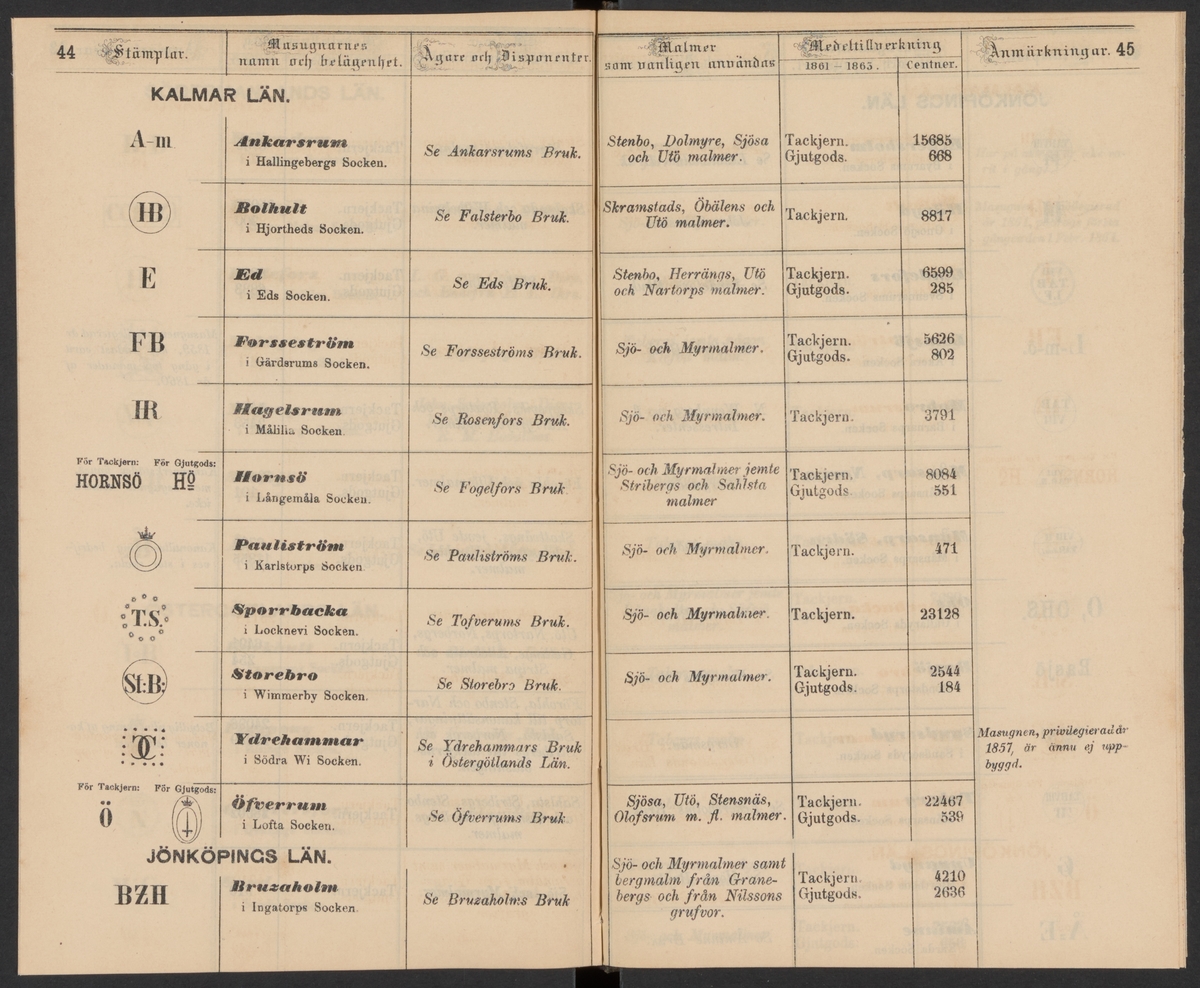 44 Stämplar. Masugnarnes namn och belägenhet. Ägare och Disponenter. Malmer som vanligen användas Medeltillverkning 1861–1865. Centner. Anmärkningar. 45
KALMAR LÄN.
A-m Ankarsrum Se Ankarsrums Bruk. Stenbo, Dolmyre, Sjösa Tackjern. 15685
i Hallingebergs Socken. och Utö malmer. Gjutgods. 668
HB Bolhult Se Falsterbo Bruk. Skramstads, Öbälens och Tackjern. 8817
i Hjortheds Socken. Utö malmer.
E Ed Se Eds Bruk. Stenbo, Herrängs, Utö Tackjern. 6599
i Eds Socken. och Nartorps malmer. Gjutgods. 285
FB Forsseström Se Forsseströms Bruk. Sjö- och Myrmalmer. Tackjern. 5626
i Gärdsrums Socken. Gjutgods. 802
HR Hagelsrum Se Rosenfors Bruk. Sjö- och Myrmalmer. Tackjern. 3791
i Målilla Socken.
För Tackjern: För Gjutgods:
HORNSÖ HÖ Hornsö Se Fogelfors Bruk Sjö- och Myrmalmer jemte Tackjern. 8084
i Långemåla Socken. Stribergs och Sahlsta Gjutgods 551
malmer
Pauliström Se Pauliströms Bruk. Sjö- och Myrmalmer. Tackjern. 471
i Karlstorps Socken.
T.S. Sporrbacka Se Tofverums Bruk. Sjö- och Myrmalmer. Tackjern. 23128
i Locknevi Socken.
St:B: Storebro Se Storebro Bruk. Sjö- och Myrmalmer. Tackjern. 2544
i Wimmerby Socken. Gjutgods. 184
Ydrehammar Se Ydrehammars Bruk Masugnen, privilegierad år
i Södra Wi Socken. i Östergötlands Län. 1857, är ännu ej upp-
byggd.
För Tackjern: För Gjutgods:
Ö Öfverrum Se Öfverrums Bruk Sjösa, Utö, Stensnäs, Tackjern. 22467
i Lofta Socken. Olofsrum m. fl. malmer. Gjutgods. 539
JÖNKÖPINGS LÄN.
BZH Bruzaholm Se Bruzaholms Bruk Sjö- och Myrmalmer samt Tackjern. 4210
i Ingatorps Socken. bergmalm från Grane- Gjutgods. 2636
bergs och från Nilssons
grufvor.